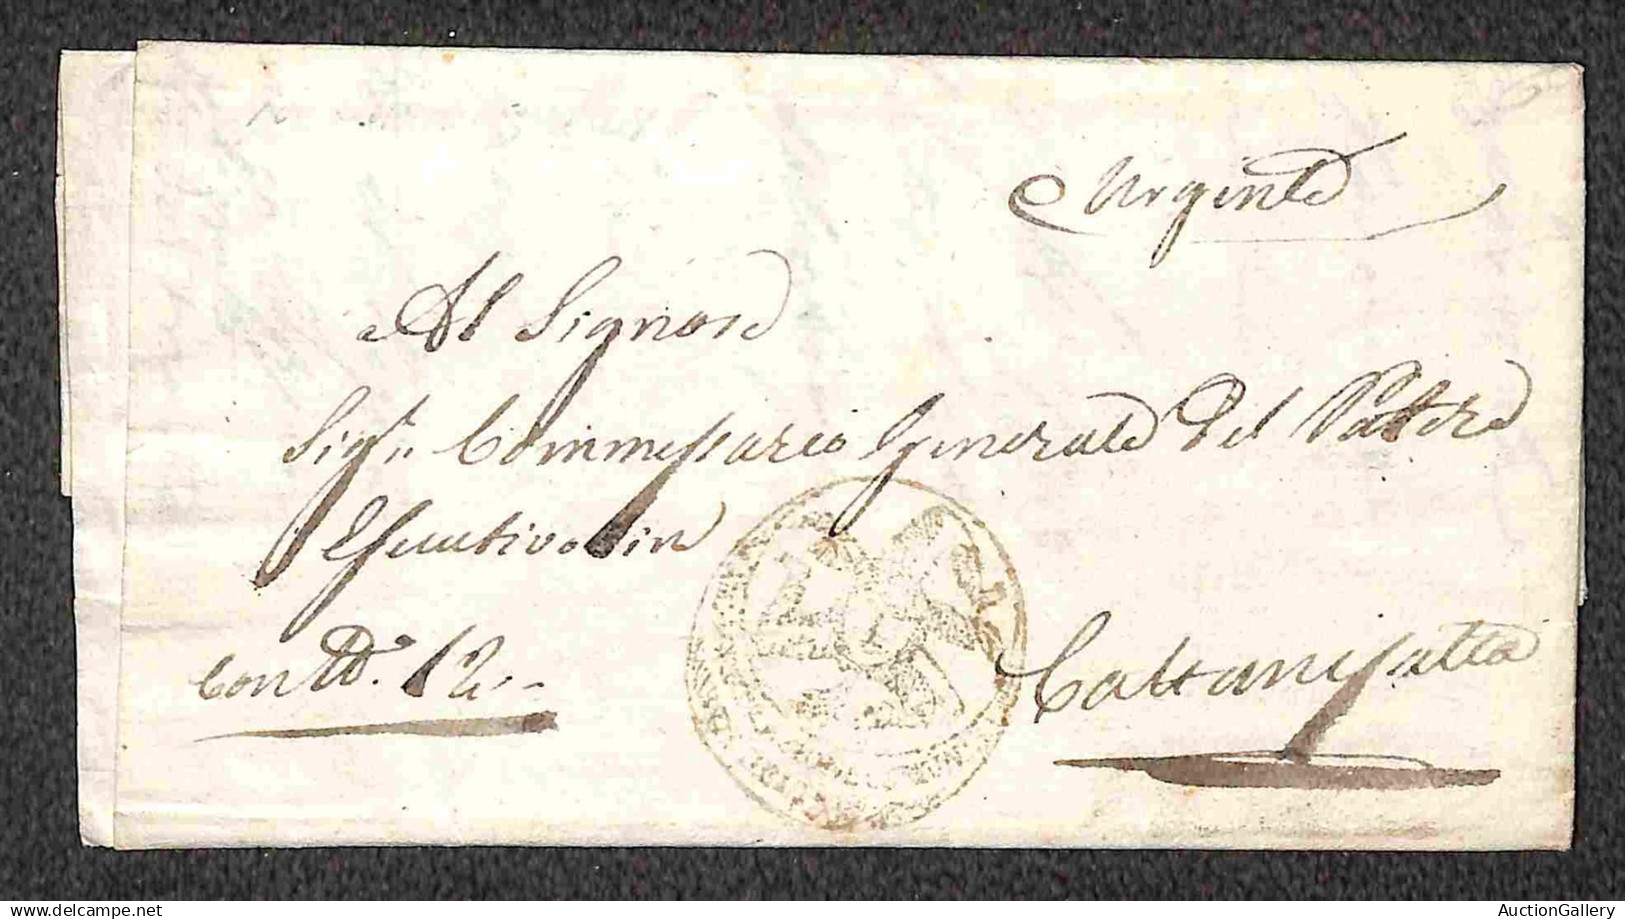 Urgente
Al Signore
Sig.r Commessario Generale del Potere
Esecutivo in
Con D. 12
Caltanisetta
delcampe.net
AuctionGallery